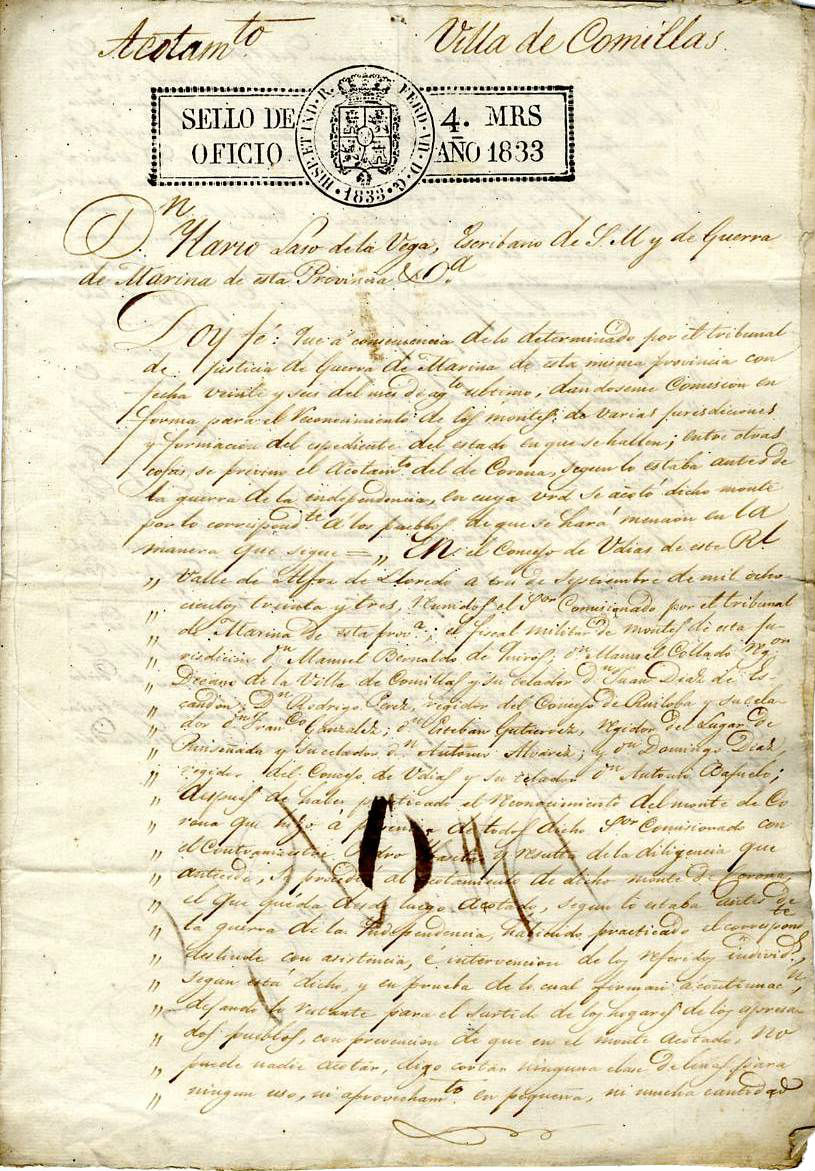 Acotam.to Villa de Comillas
SELLO DE OFICIO
HISP. ET IND. R. FERD. VII. D. G. 1833.
4. MRS AÑO 1833
D.n Ylario Laso de la Vega, Escribano de S. M y de Guerra
de Marina de esta Provincia &.a
Doy fé: Que á consecuencia de lo determinado por el tribunal
de justicia de Guerra de Marina de esta misma provincia con
fecha veinte y seis del mes de ag.to ultimo, dandoseme Comision en
forma para el reconocimiento de los montes de varias jurisdiciones
y formacion del espediente del estado en que se hallen; entre otras
cosas se previno el Acotam.to del de Corona, segun lo estaba antes de
la guerra de la independencia, en cuya vrd se acotó dicho monte
por lo correspond.te á los pueblos de que se hará mencion en la
manera que sigue = „ En el Concejo de Udias de este Rl
„ Valle de Alfoz de Lloredo a tres de Septiembre de mil ocho
„ cientos treinta y tres, reunidos el S.or Comisionado por el tribunal
„ de Marina de esta prov.a; el fiscal militar de montes de esta ju-
„ risdicion d.n Manuel Bernaldo de Quiros; d.n Manuel Collado Reg.or
„ Decano de la Villa de Comillas y su celador d.n Juan Diaz de Es-
„ candon; D.n Rodrigo Perez, regidor del Concejo de Ruiloba y su cela-
„ dor d.n Fran.co Gonzalez; d.n Esteban Gutierrez, regidor del Lugar de
„ Ruiseñada y su celador d.n Antonio Alvarez; y d.n Domingo Diaz,
„ regidor del Concejo de Udias y su celador d.n Antonio
„ despues de haber practicado el reconocimiento del monte de Co-
„ rona que hizo á presencia de todos dicho S.or Comisionado con
„ el Contramaestre Pedro y resulta de la diligencia que
„ antecede, se procedió al acotamiento de dicho monte de Corona,
„ el que queda desde luego Acotado, segun lo estaba antes de
„ la guerra de la Independencia, habiendo practicado el correspond.te
„ deslinde con asistencia, e intervencion de los referidos individ.s
„ segun está dicho, y en prueba de lo cual firman á continuac.n,
„ dejando lo restante para el surtido de los hogares de los espresa-
„ dos pueblos, con prevencion de que en el monte Acotado, no
„ puede nadie acotar, digo cortar ninguna clase de leñas para
„ ningun uso, ni aprovecham.to en pequeña, ni mucha cantidad